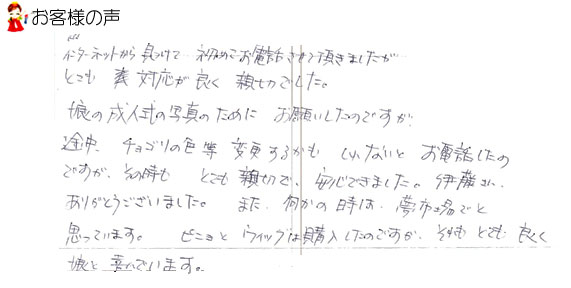 お客様の声
インターネットから見つけて 初めてお電話させて頂きましたが
とても 対応が良く 親切でした。
娘の成人式の写真のために お願いしたのですが、
途中、チョゴリの色等 変更するかも しれないと お電話したの
ですが、その時も とても 親切で、安心できました。伊藤さん、
ありがとうございました。 また、何かの時は、夢市場でと
思っています。 ピニョと ウィッグは購入したのですが、それも とても 良く
娘と 喜んでいます。